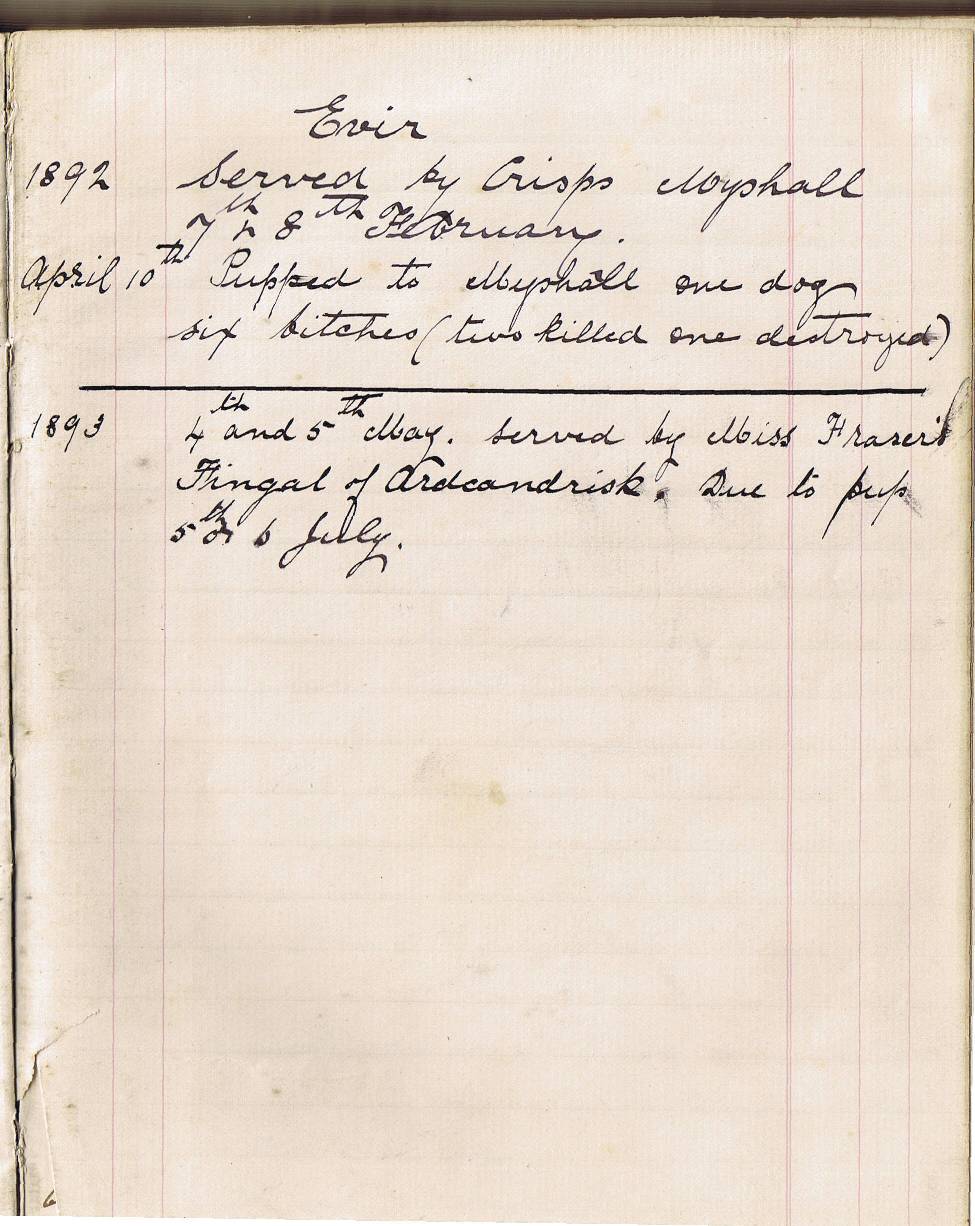 Evir
1892 Served by Crisps Myshall
7th & 8th February.
April 10th Pupped to Myshall one dog
six bitches (two killed one destroyed)
1893 4th and 5th May. served by Miss Fraser's
Fingal of Ardcandrisk. Due to pup
5th or 6 July.